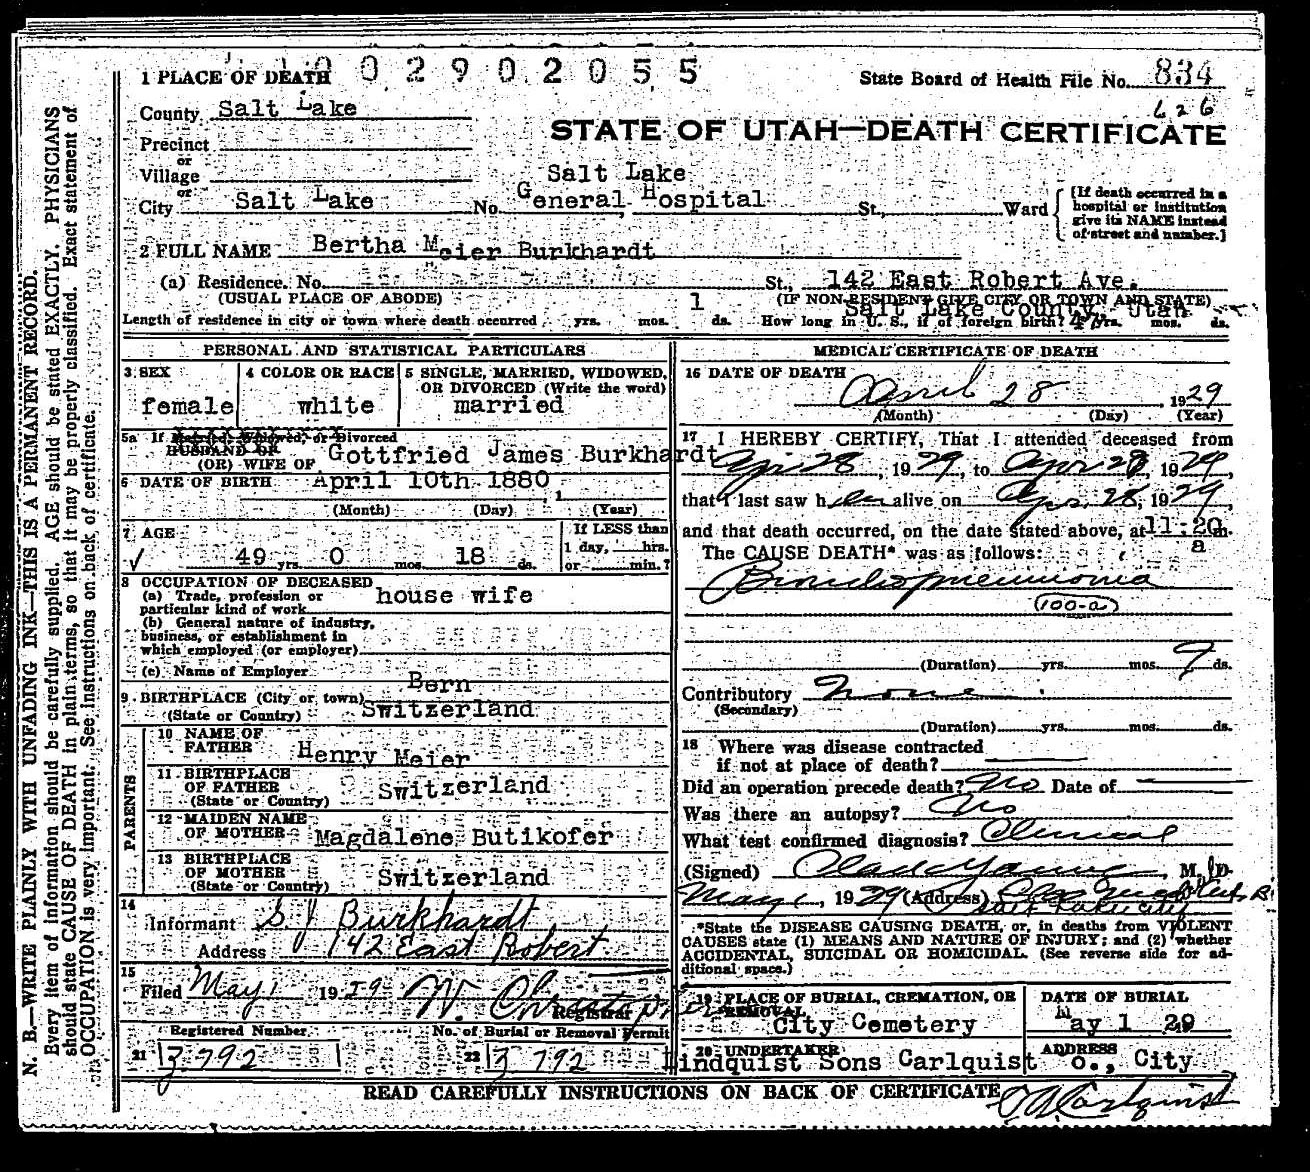 0 0 2 9 0 2 0 5 5
1 PLACE OF DEATH
State Board of Health File No. 834
626
County Salt Lake
STATE OF UTAH—DEATH CERTIFICATE
Precinct
or
Village
or
City Salt Lake No. Salt Lake General Hospital St., Ward
[If death occurred in a hospital or institution give its NAME instead of street and number.]
2 FULL NAME Bertha Meier Burkhardt
(a) Residence. No. St., 142 East Robert Ave.
(USUAL PLACE OF ABODE) (IF NON-RESIDENT GIVE CITY OR TOWN AND STATE)
Salt Lake County, Utah
Length of residence in city or town where death occurred yrs. mos. 1 ds. How long in U. S., if of foreign birth? yrs. mos. ds.
PERSONAL AND STATISTICAL PARTICULARS
3 SEX
female
4 COLOR OR RACE
white
5 SINGLE, MARRIED, WIDOWED, OR DIVORCED (Write the word)
married
5a If Married, Widowed, or Divorced
HUSBAND OF
(OR) WIFE OF Gottfried James Burkhardt
6 DATE OF BIRTH April 10th 1880
(Month) (Day) (Year)
7 AGE
49 yrs. 0 mos. 18 ds.
If LESS than
1 day, hrs.
or min.?
8 OCCUPATION OF DECEASED
(a) Trade, profession or
particular kind of work house wife
(b) General nature of industry,
business, or establishment in
which employed (or employer)
(c) Name of Employer
9 BIRTHPLACE (City or town) Bern
(State or Country) Switzerland
PARENTS
10 NAME OF
FATHER Henry Meier
11 BIRTHPLACE
OF FATHER Switzerland
(State or Country)
12 MAIDEN NAME
OF MOTHER Magdalene Butikofer
13 BIRTHPLACE
OF MOTHER Switzerland
(State or Country)
14
Informant Burkhardt
Address 142 East Robert
15
Filed May 1 1929 W. Christopherson
Registrar
Registered Number
21 3792
No. of Burial or Removal Permit
22 3792
MEDICAL CERTIFICATE OF DEATH
16 DATE OF DEATH
April 28, 1929
(Month) (Day) (Year)
17 I HEREBY CERTIFY, That I attended deceased from
Apr 28, 1929, to Apr 28 1929,
that I last saw her alive on Apr. 28, 1929,
and that death occurred, on the date stated above, at 11:20 a m.
The CAUSE DEATH* was as follows:
Bronchopneumonia
100-a
(Duration) yrs. mos. 9 ds.
Contributory None
(Secondary)
(Duration) yrs. mos. ds.
18 Where was disease contracted
if not at place of death?
Did an operation precede death? No Date of
Was there an autopsy? No
What test confirmed diagnosis? Clinical
(Signed) M. D.
May 1, 1929 (Address) Salt Lake City
*State the DISEASE CAUSING DEATH, or, in deaths from VIOLENT
CAUSES state (1) MEANS AND NATURE OF INJURY; and (2) whether
ACCIDENTAL, SUICIDAL OR HOMICIDAL. (See reverse side for ad-
ditional space.)
19 PLACE OF BURIAL, CREMATION, OR
REMOVAL
City Cemetery
DATE OF BURIAL
May 1 29
20 UNDERTAKER
Lindquist Sons Carlquist
ADDRESS
o., City
READ CAREFULLY INSTRUCTIONS ON BACK OF CERTIFICATE
Carlquist
N. B.—WRITE PLAINLY WITH UNFADING INK—THIS IS A PERMANENT RECORD.
Every item of information should be carefully supplied. AGE should be stated EXACTLY. PHYSICIANS
should state CAUSE OF DEATH in plain terms, so that it may be properly classified. Exact statement of
OCCUPATION is very important. See instructions on back of certificate.